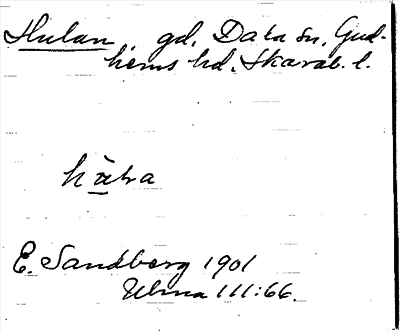 Hulan, gd, Data sn, Gud-
hems hd. Skarab. l.
E. Sandberg 1901
Ulma 111:66.